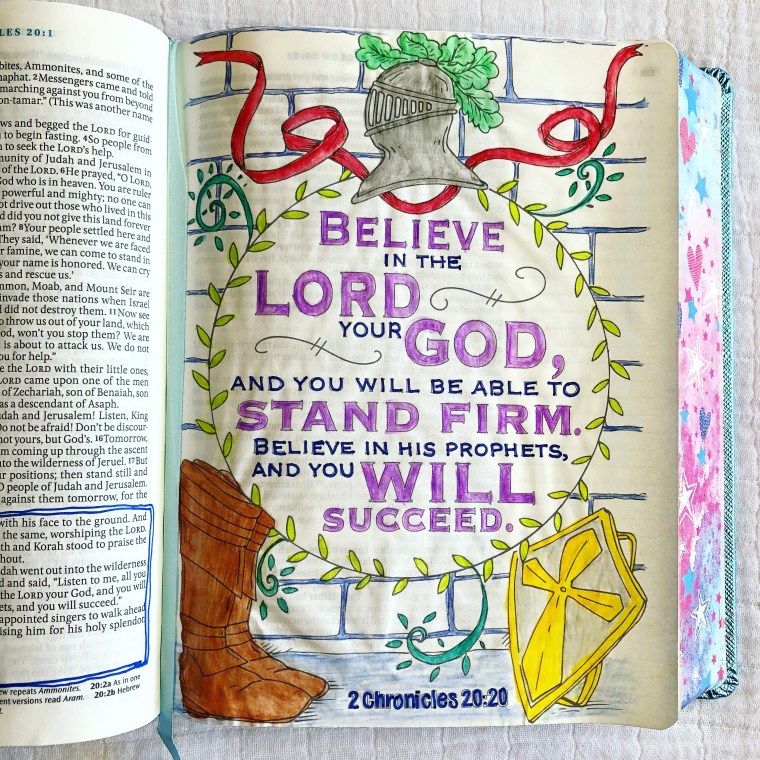 LES 20:1
bites, Ammonites, and some of the
haphat. 2Messengers came and told
marching against you from beyond
on-tamar." (This was another name
ws and begged the LORD for guid-
to begin fasting. 4So people from
to seek the LORD's help.
munity of Judah and Jerusalem in
of the LORD. 6He prayed, "O LORD,
God who is in heaven. You are ruler
powerful and mighty; no one can
ot drive out those who lived in this
d did you not give this land forever
am? 8Your people settled here and
They said, 'Whenever we are faced
r famine, we can come to stand in
your name is honored. We can cry
s and rescue us.'
mmon, Moab, and Mount Seir are
invade those nations when Israel
d did not destroy them. 11Now see
o throw us out of your land, which
od, won't you stop them? We are
is about to attack us. We do not
ou for help."
e the LORD with their little ones,
LORD came upon one of the men
of Zechariah, son of Benaiah, son
as a descendant of Asaph.
dah and Jerusalem! Listen, King
Do not be afraid! Don't be discour-
not yours, but God's. 16Tomorrow,
m coming up through the ascent
nto the wilderness of Jeruel. 17But
r positions; then stand still and
O people of Judah and Jerusalem.
against them tomorrow, for the
with his face to the ground. And
the same, worshiping the LORD.
th and Korah stood to praise the
hout.
dah went out into the wilderness
d and said, "Listen to me, all you
the LORD your God, and you will
ets, and you will succeed."
appointed singers to walk ahead
ising him for his holy splendor.
ew repeats Ammonites. 20:2a As in one
ent versions read Aram. 20:2b Hebrew
BELIEVE
IN THE
LORD
YOUR GOD,
AND YOU WILL BE ABLE TO
STAND FIRM.
BELIEVE IN HIS PROPHETS,
AND YOU WILL
SUCCEED.
2 Chronicles 20:20